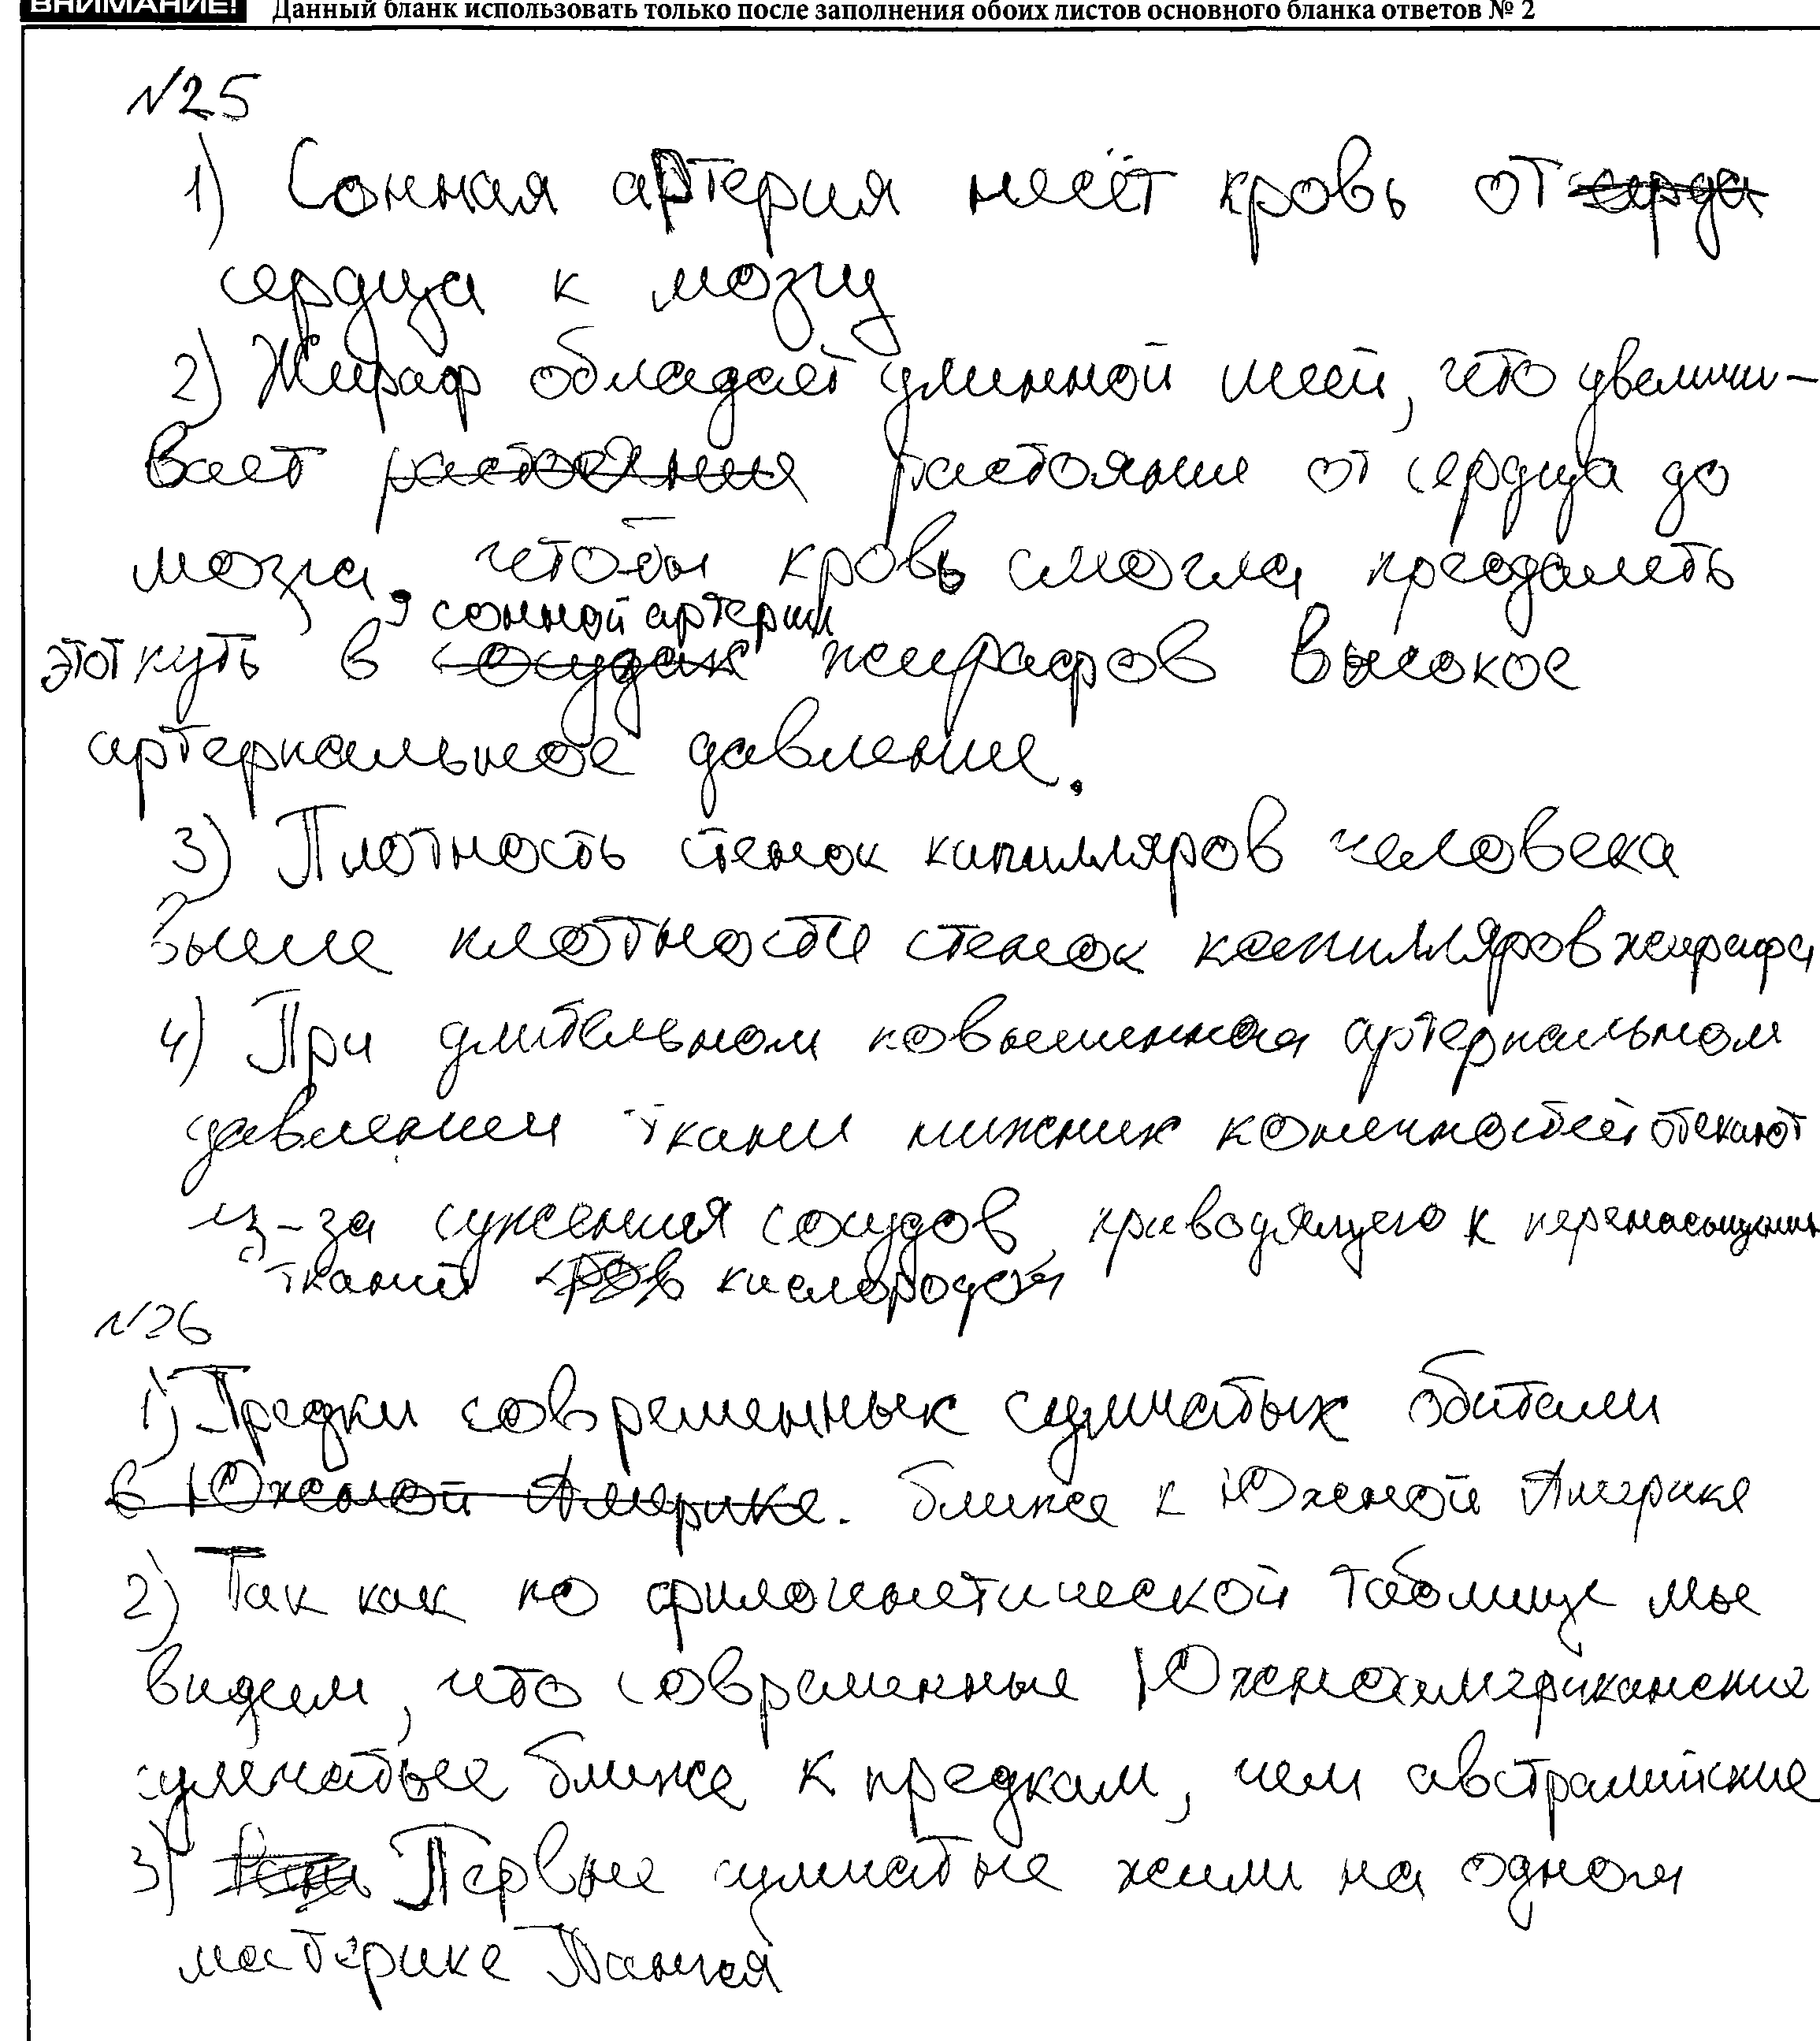 ВНИМАНИЕ! Данный бланк использовать только после заполнения обоих листов основного бланка ответов № 2
№25
1) Сонная артерия несёт кровь от серда
сердца к мозгу
2) Жираф обладает длинной шеей, что увеличи-
вает растояния растояние от сердца до
мозга, чтобы кровь смогла преодолеть
сонной артерии
этот путь в сосудах жирафов высокое
артериальное давление.
3) Плотность стенок капилляров человека
выше плотности стенок капилляров жирафа
4) При длительном повышенном артериальном
давлении ткани нижних конечностей отекают
из-за сужения сосудов, приводящего к перенасыщению
тканей кровь кислородом
№26
1) Предки современных сумчатых обитали
в Южной Америке. ближе к Южной Америке
2) Так как по филогенетической таблице мы
видем, что современные Южноамериканские
сумчатые ближе к предкам, чем австралийские
3) Первые сумчатые жили на одном
материке Пангея